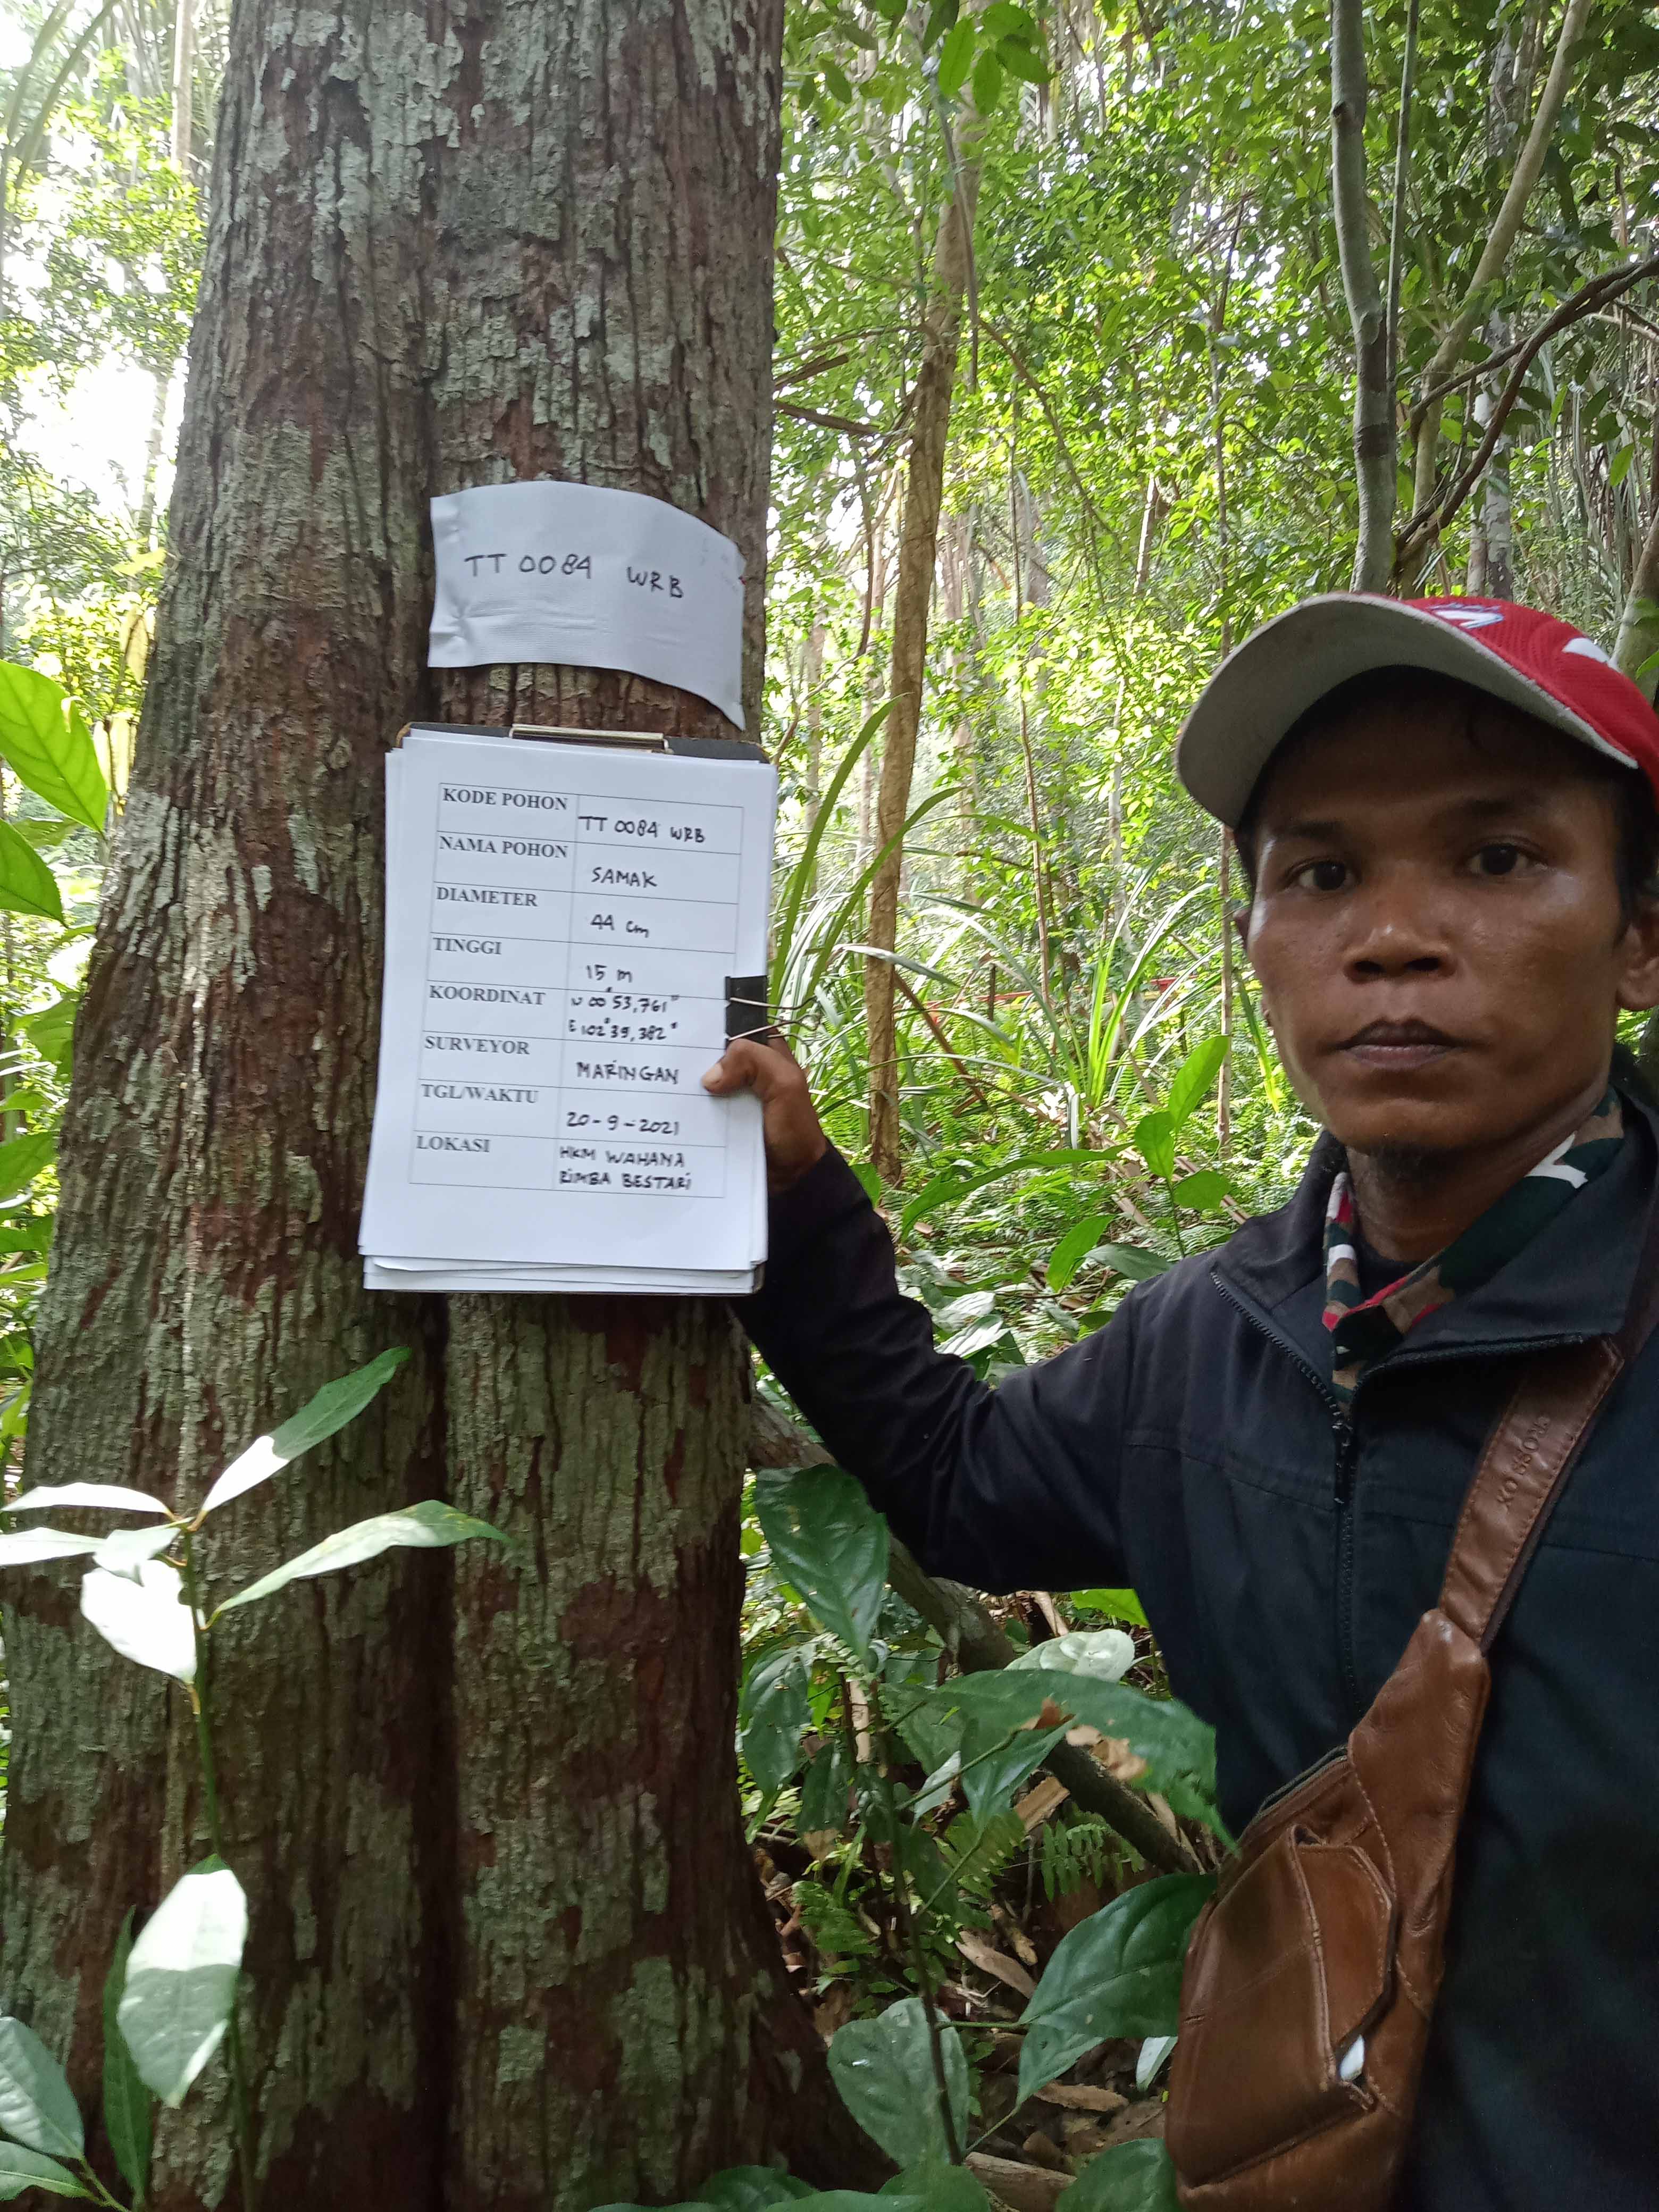 TT 0084 WRB
KODE POHON TT 0084 WRB
NAMA POHON SAMAK
DIAMETER 44 cm
TINGGI 15 m
KOORDINAT N 00°53,761"
E 102°39,382"
SURVEYOR MARINGAN
TGL/WAKTU 20-9-2021
LOKASI HKM WAHANA
RIMBA BESTARI